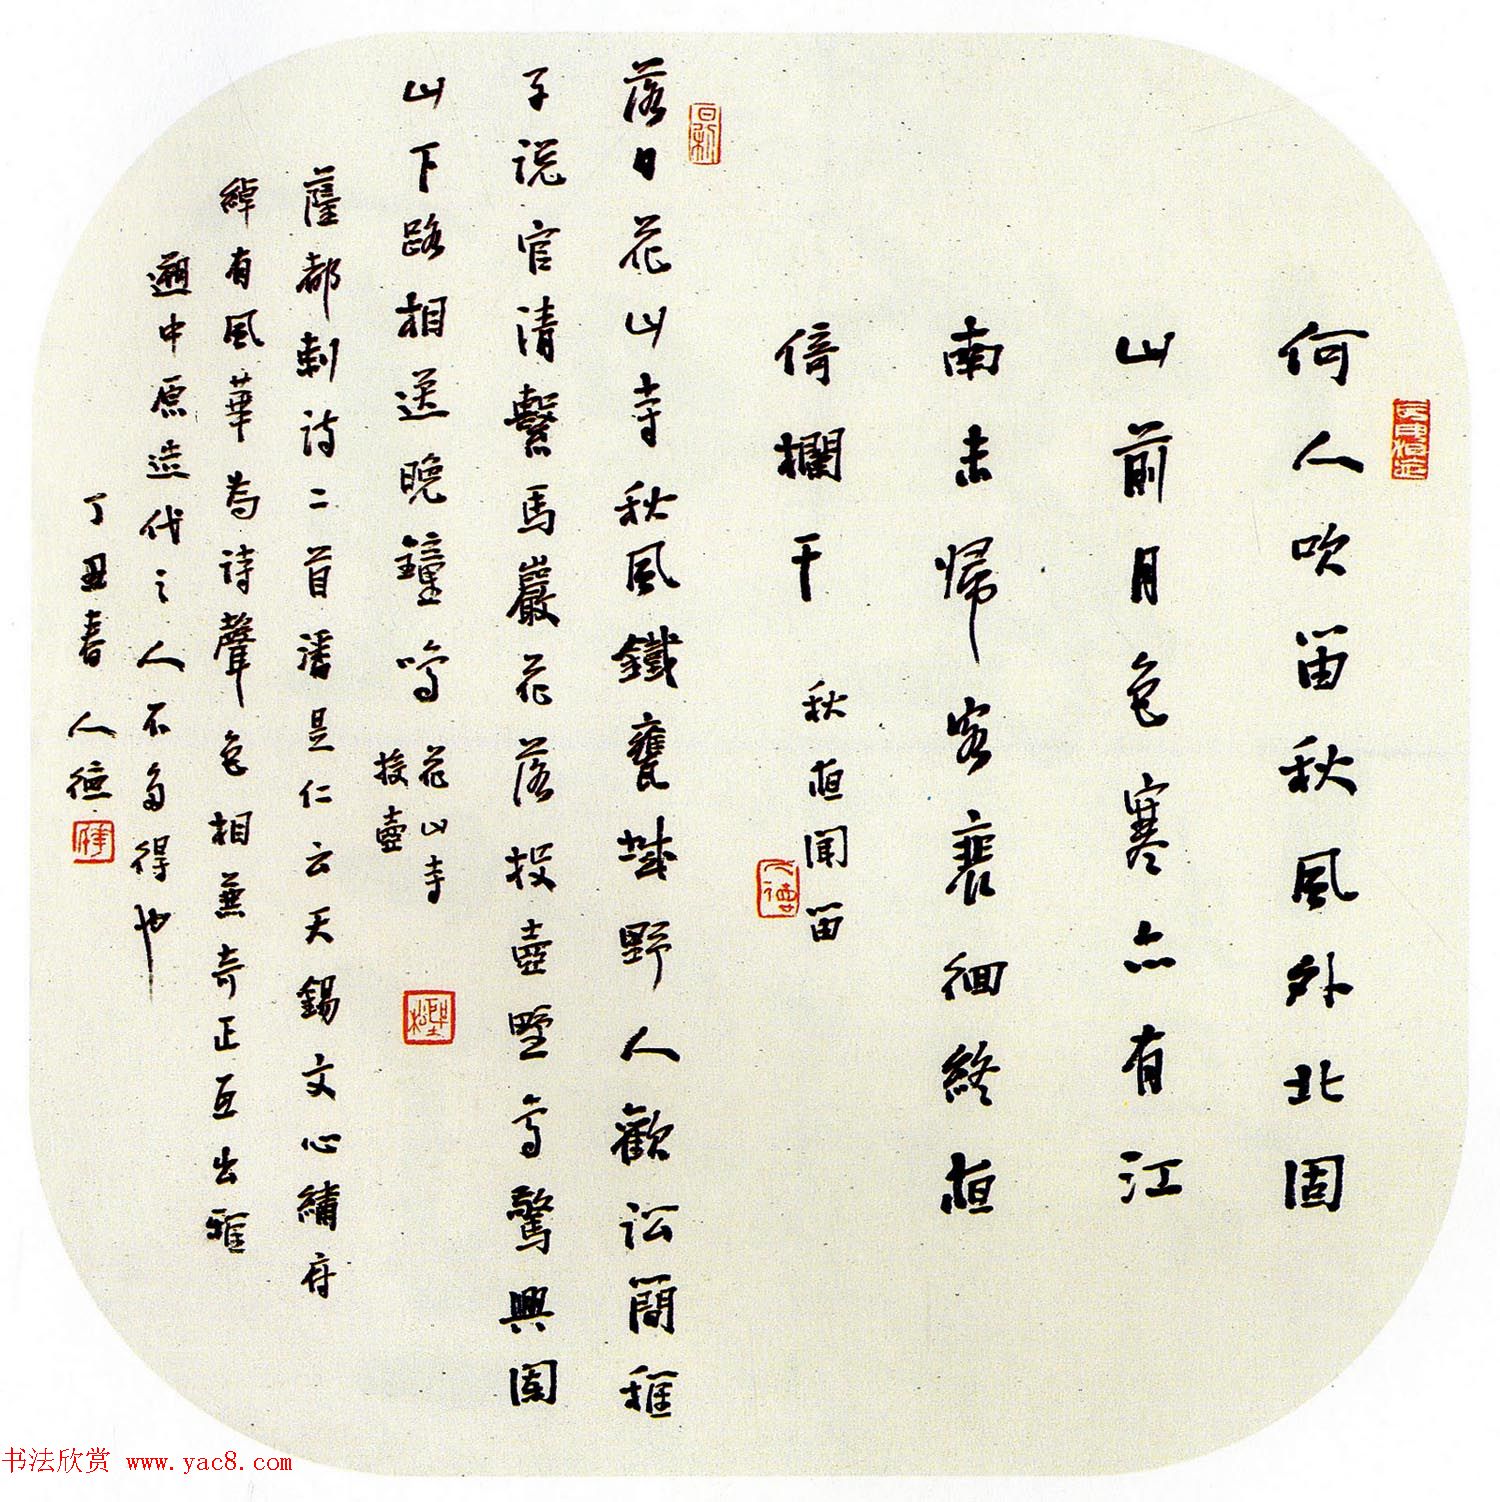 何人吹笛秋風外北固
山前月色寒亦有江
南未歸客裴徊終夜
倚欄干 秋夜聞笛
落日花山寺秋風鐵甕城野人歡訟簡稚
子說官清繫馬巖花落投壺野鳥驚興闌
山下路相送晚鐘鳴 花山寺
投壺
薩都剌詩二首潘是仁云天錫文心繡府
綽有風華為詩聲色相兼奇正互出雅
遡中原遠代之人不多得也
丁丑春 人德
书法欣赏 www.yac8.com